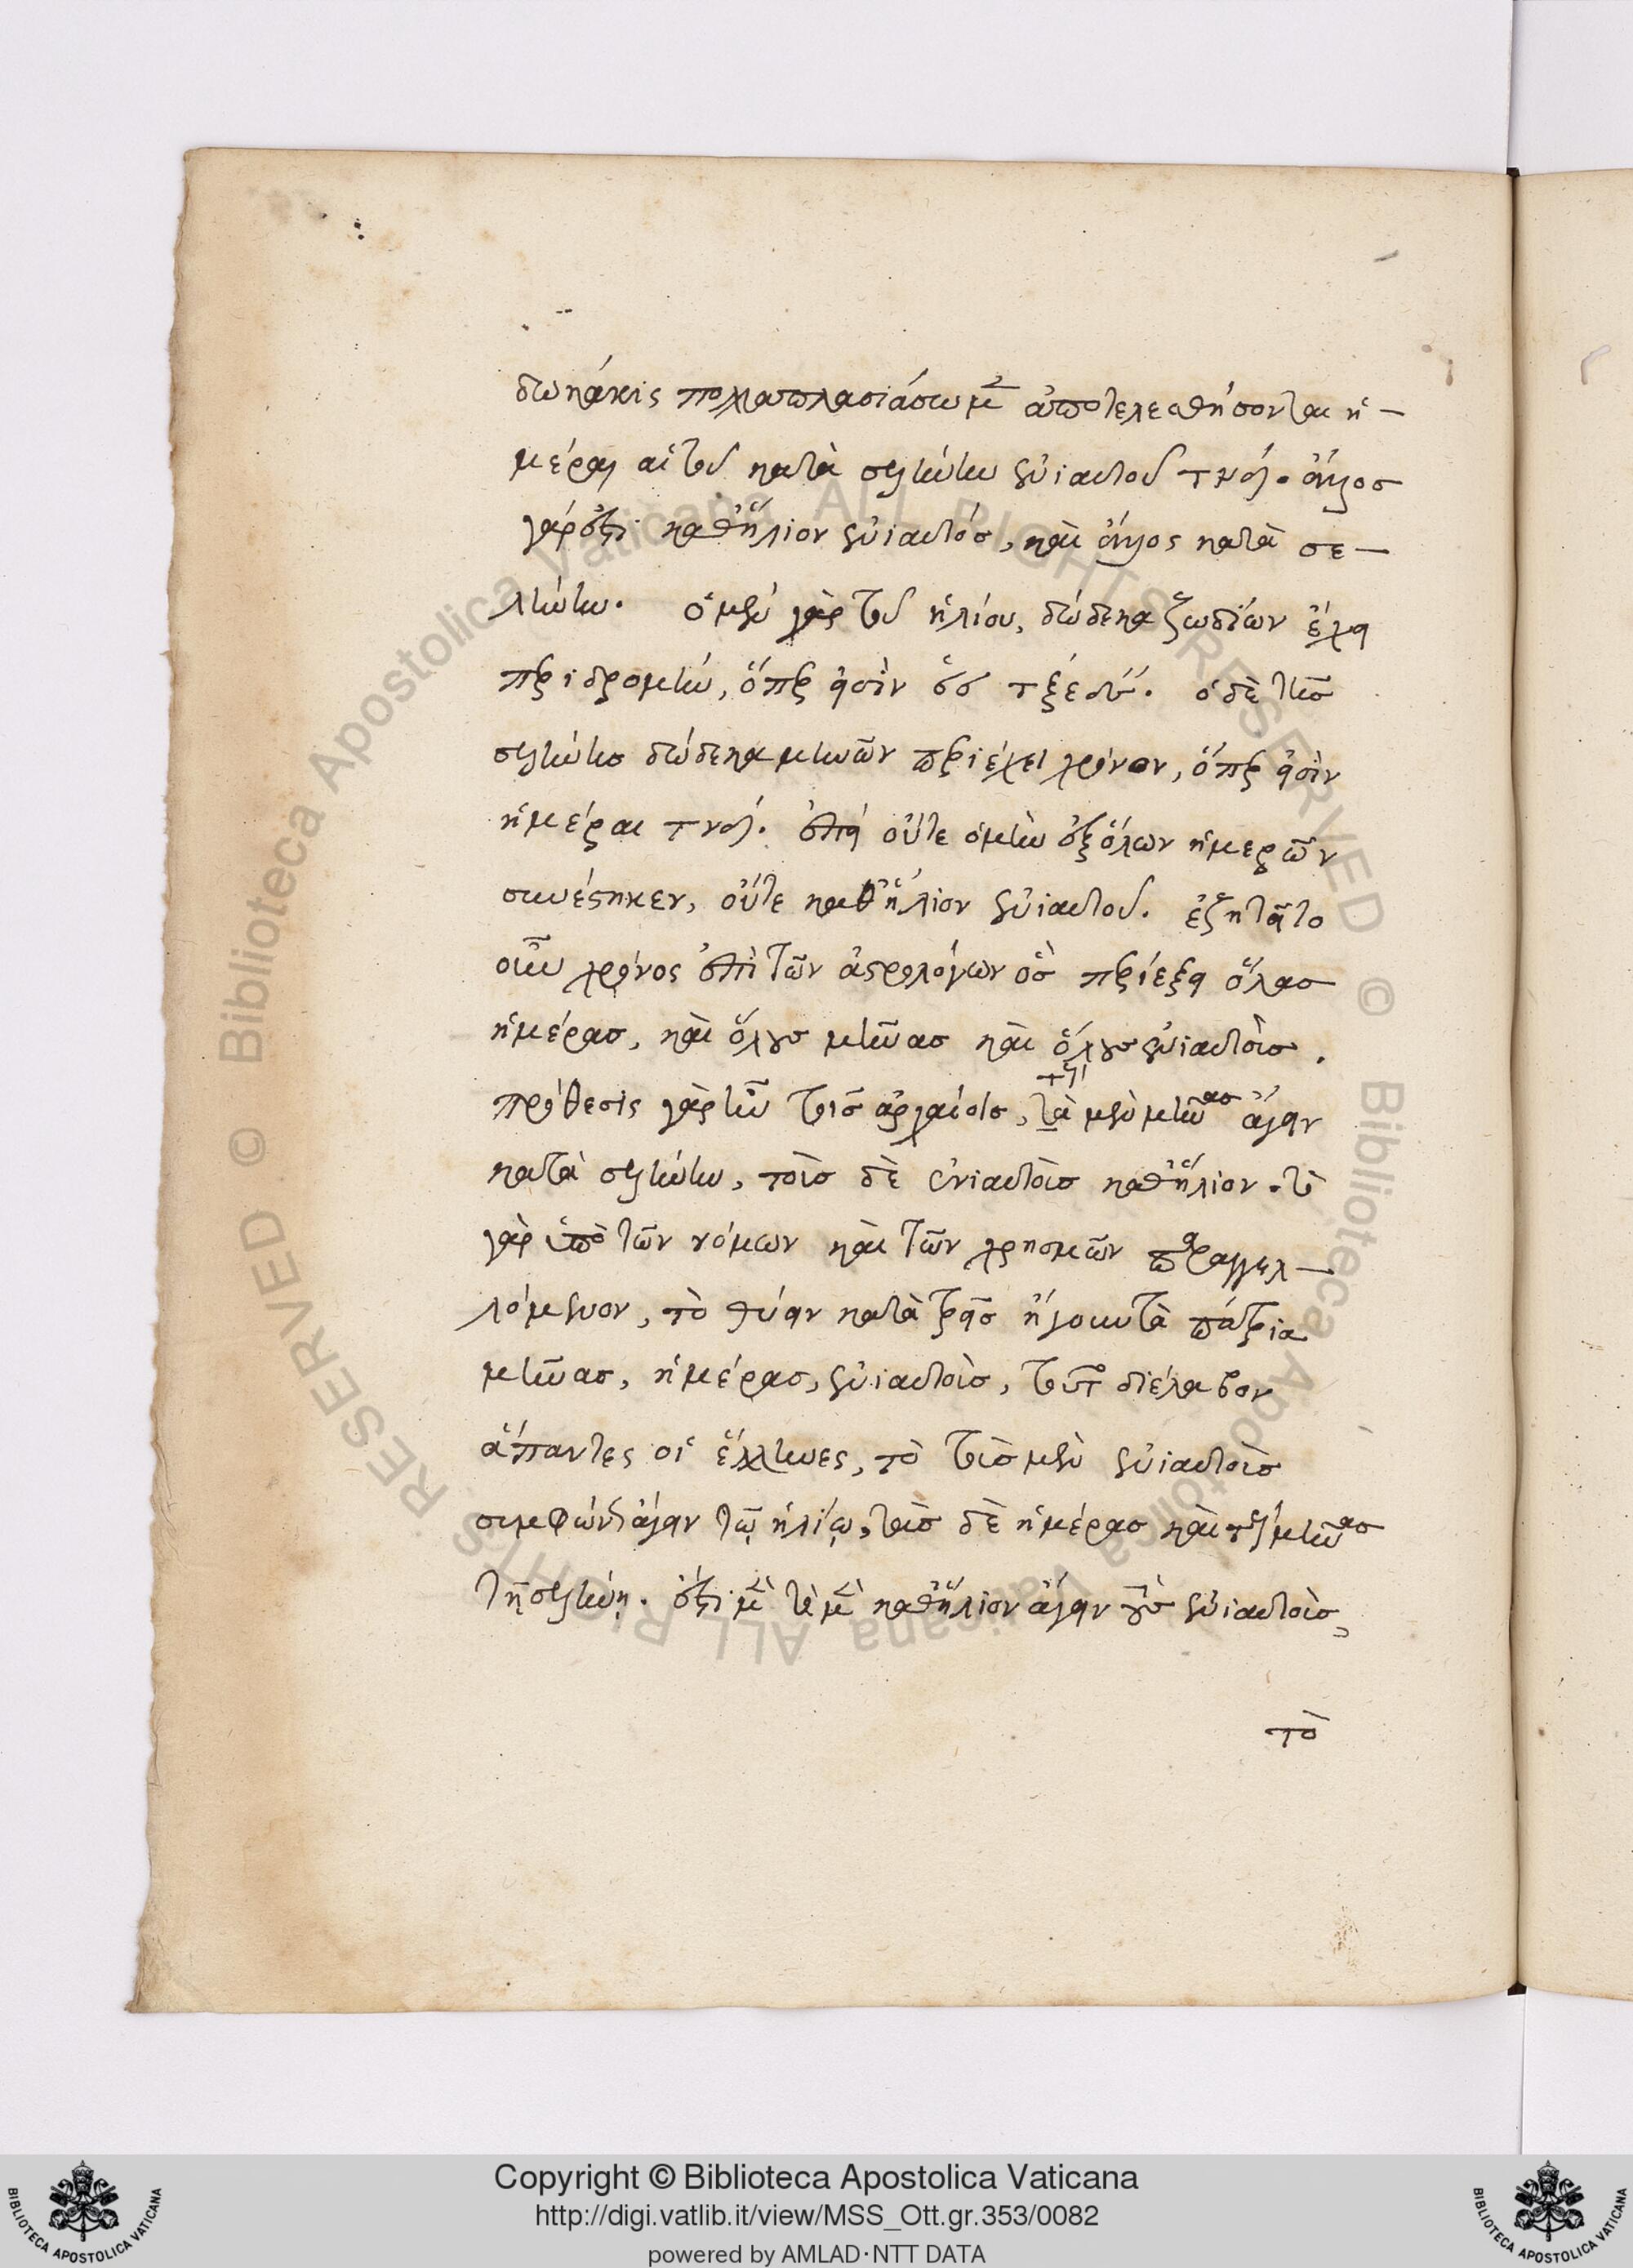 δωκάκις πολλαπλασιάσωμεν ἀποτελεσθήσονται ἡ-
μέραι αἱ τοῦ κατὰ σελήνην ἐνιαυτοῦ τνδ. ἄλλος
γάρ ἐστι καθ' ἥλιον ἐνιαυτός, καὶ ἄλλος κατὰ σε-
λήνην. ὁ μὲν γὰρ τοῦ ἡλίου, δώδεκα ζωδίων ἔχει
περιδρομὴν, ὅπερ εἰσὶν τξε δ. ὁ δὲ τῆς
σελήνης δώδεκα μηνῶν περιέχει χρόνον, ὅπερ εἰσὶν
ἡμέραι τνδ. ἐπεὶ οὔτε ὁ μὴν ἐξ ὅλων ἡμερῶν
συνέστηκεν, οὔτε καθ' ἥλιον ἐνιαυτοῦ. ἐζητεῖτο
οὖν χρόνος ἐπὶ τῶν ἀστρολόγων ὃς περιέξει ὅλας
ἡμέρας, καὶ ὅλους μῆνας καὶ ὅλους ἐνιαυτοὺς.
πρόθεσις γὰρ ἦν τοῖς ἀρχαίοις, τὰ μὲν μῆνας ἄγειν
κατὰ σελήνην, τοὺς δὲ ἐνιαυτοὺς καθ' ἥλιον. τὸ
γὰρ ὑπὸ τῶν νόμων καὶ τῶν χρησμῶν παραγγελ-
λόμενον, τὸ θύειν κατὰ τρεῖς ἤγουν τὰ πάτρια
μῆνας, ἡμέρας, ἐνιαυτοὺς, τοῦτο διέλαβον
ἅπαντες οἱ ἕλληνες, τὸ τοὺς μὲν ἐνιαυτοὺς
συμφώνως ἄγειν τῷ ἡλίῳ, τὰς δὲ ἡμέρας καὶ τοὺς μῆνας
τῇ σελήνῃ. ἔστι μὲν τὸ μὲν καθ' ἥλιον ἄγειν τοὺς ἐνιαυτοὺς,
τὸ
Copyright © Biblioteca Apostolica Vaticana
http://digi.vatlib.it/view/MSS_Ott.gr.353/0082
powered by AMLAD·NTT DATA